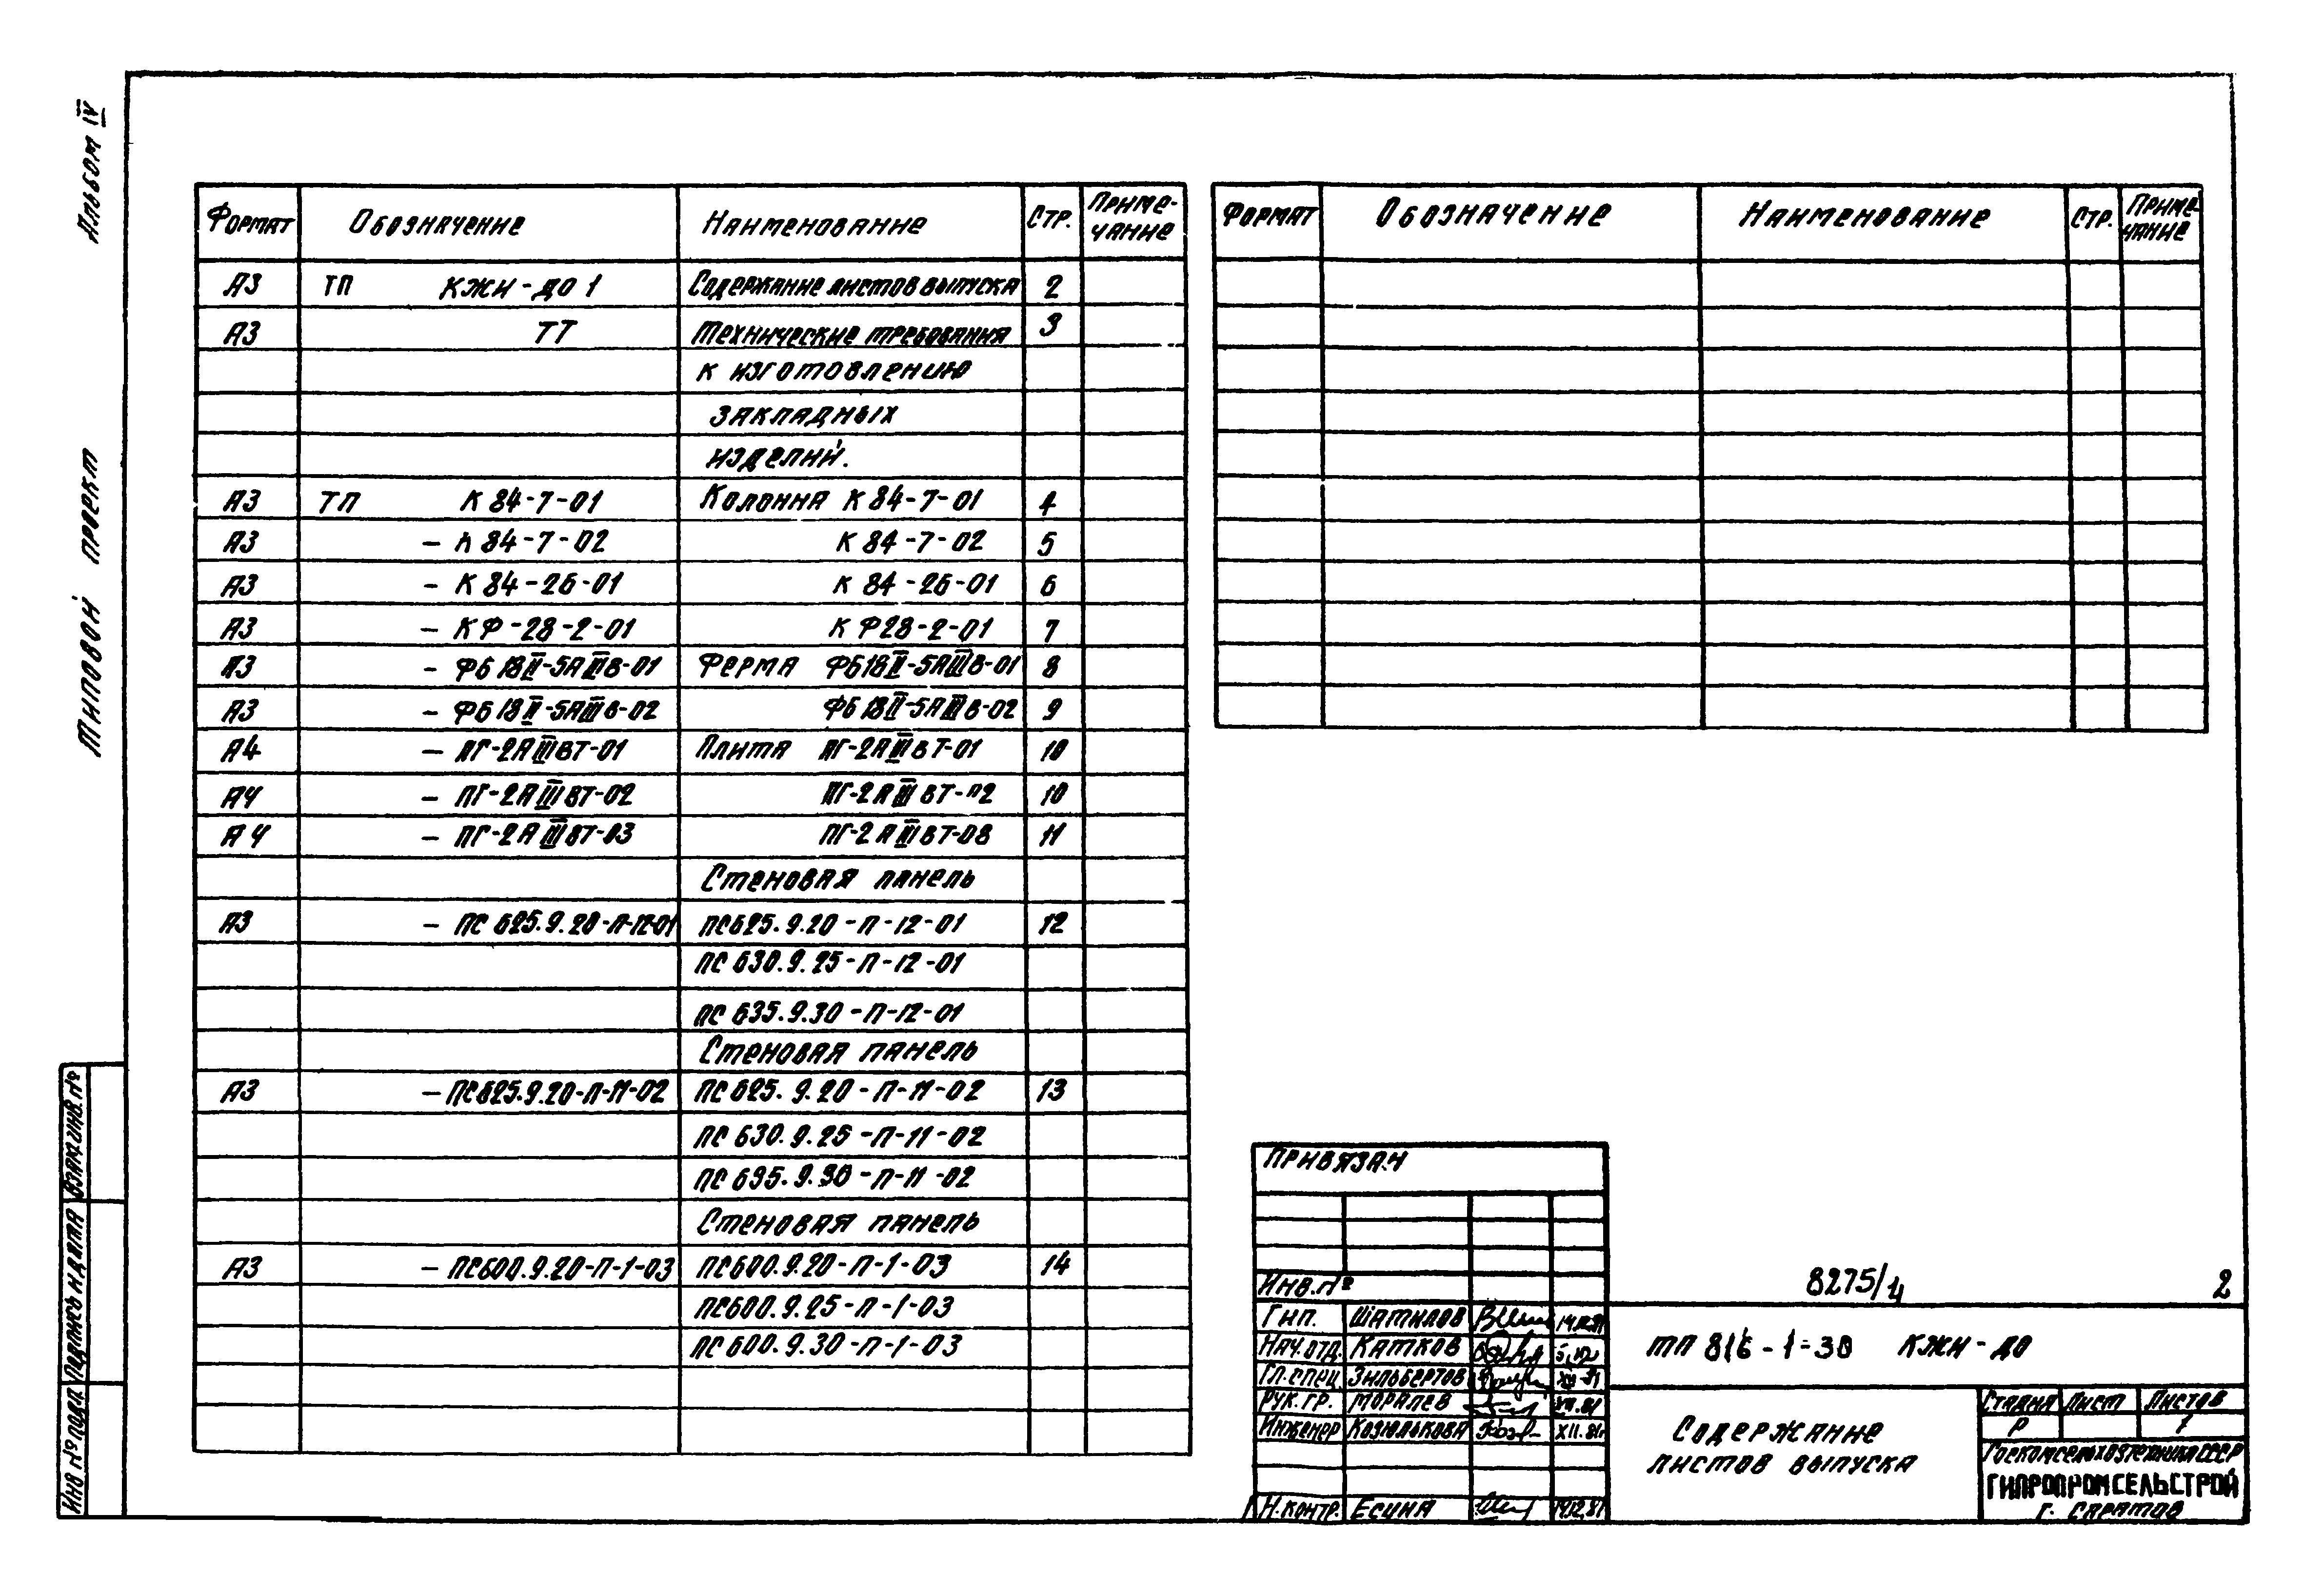 Альбом IV
Типовой проект
Формат Обозначение Наименование Стр. Приме-
чание
А3 ТП КЖИ-ДО 1 Содержание листов выпуска 2
А3 ТТ Технические требования 3
к изготовлению
закладных
изделий.
А3 ТП К 84-7-01 Колонна К 84-7-01 4
А3 - К 84-7-02 К 84-7-02 5
А3 - К 84-26-01 К 84-26-01 6
А3 - КФ-28-2-01 КФ28-2-01 7
А3 - ФБ18II-5АIIIв-01 Ферма ФБ18II-5АIIIв-01 8
А3 - ФБ18II-5АIIIв-02 ФБ18II-5АIIIв-02 9
А4 - ПГ-2АIIIвТ-01 Плита ПГ-2АIIIвТ-01 10
А4 - ПГ-2АIIIвТ-02 ПГ-2АIIIвТ-02 10
А4 - ПГ-2АIIIвТ-03 ПГ-2АIIIвТ-03 11
Стеновая панель
А3 - ПС 625.9.20-П-12-01 ПС625.9.20-П-12-01 12
ПС 630.9.25-П-12-01
ПС 635.9.30-П-12-01
Стеновая панель
А3 - ПС625.9.20-П-11-02 ПС 625.9.20-П-11-02 13
ПС 630.9.25-П-11-02
ПС 635.9.30-П-11-02
Стеновая панель
А3 - ПС600.9.20-П-1-03 ПС600.9.20-П-1-03 14
ПС600.9.25-П-1-03
ПС 600.9.30-П-1-03
Формат Обозначение Наименование Стр. Приме-
чание
Взам.инв.№
Подпись и дата
Инв № подл.
Привязан
Инв.№
8275/4 2
Гип. Шатилов 14.12.81
Нач.отд. Катков
Гл.спец. Зильбертов XII-81
Рук.гр. Моралев XII.81
Инженер Козюлькова XII.81г
Н.контр. Есина 14.12.81
ТП 816-1-30 КЖИ-ДО
Содержание
листов выпуска
Стадия Лист Листов
Р 1
Госкомсельхозтехника СССР
ГИПРОПРОМСЕЛЬСТРОЙ
г. Саратов